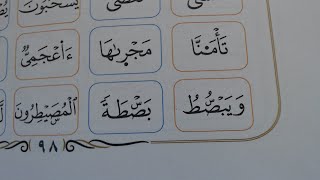 تَأْمَ۫نَّا مَجْر۪ىٰهَا ءَا۬عْجَمِىٌّ
وَيَبْصُۜطُ بَصْۜطَةً اَلْمُصَۣيْطِرُونَ
٩٨